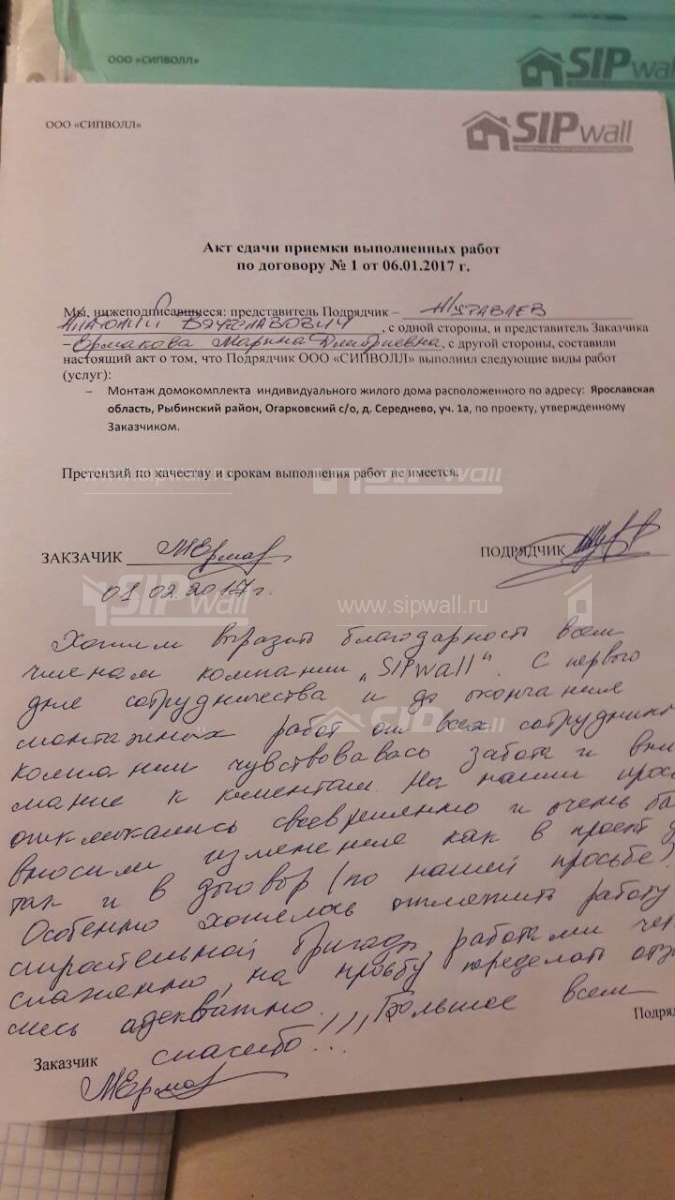 ООО «СИПВОЛЛ»
SIPwall
ООО «СИПВОЛЛ»
SIPwall
Акт сдачи приемки выполненных работ
по договору № 1 от 06.01.2017 г.
Мы, нижеподписавшиеся: представитель Подрядчик – Журавлев
Анатолий Вячеславович, с одной стороны, и представитель Заказчика
- Ермакова Марина Дмитриевна, с другой стороны, составили
настоящий акт о том, что Подрядчик ООО «СИПВОЛЛ» выполнил следующие виды работ
(услуг):
– Монтаж домокомплекта индивидуального жилого дома расположенного по адресу: Ярославская
область, Рыбинский район, Огарковский с/о, д. Середнево, уч. 1а, по проекту, утвержденному
Заказчиком.
Претензий по качеству и срокам выполнения работ не имеется.
www.sipwall.ru SIPwall
ЗАКЗАЧИК МЕрмак ПОДРЯДЧИК
01.02.2017г.
SIPwall www.sipwall.ru
Хотим выразить благодарность всем
членам компании „SIPwall". С первого
дня сотрудничества и до окончания
монтажных работ от всех сотрудник
компании чувствовалась забота и вни
мание к клиентам. На наши прос
откликались своевременно и очень бы
вносили изменения как в проект д
так и в договор (по нашей просьбе)
Особенно хотелось отметить работу
строительной бригады, работали че
слаженно, на просьбу переделать отз
лись адекватно. Большое всем
спасибо!!!
SIPwall
Подря
Заказчик
МЕрмак